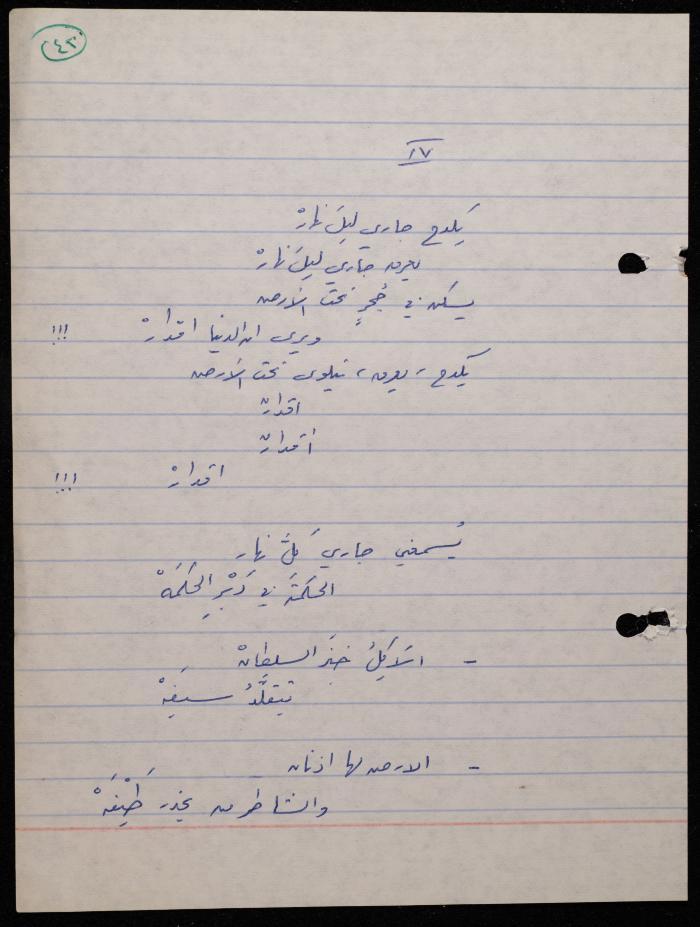 ٤٣
١٧
يكدح جاري ليلَ نهارْ
يعرق جاري ليلَ نهارْ
يسكن في جُحرٍ تحت الأرض
ويرى ان الدنيا اقدارْ !!!
يكدح، يعرق، يتلوى تحت الأرض
اقدارْ
أقدارْ
اقدارْ !!!
يُسمعني جاري كلَّ نهار
الحكمةَ في دَبْرِ الحكمَهْ
- الآكِلُ خبزَ السلطانْ
يتقلَّدُ سيفَهْ
- الارض لها اذنان
والشاطر من يحذر طَيْفَهْ